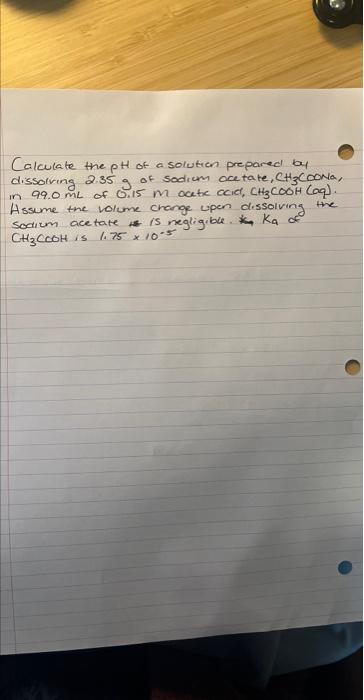 Calculate the pH of a solution prepared by
dissolving 2.35 g of sodium acetate, CH3COONa,
in 99.0 mL of 0.15 m acetic acid, CH3COOH (aq).
Assume the volume change upon dissolving the
sodium acetate is negligible. Ka of
CH3COOH is 1.75 x 10^-5